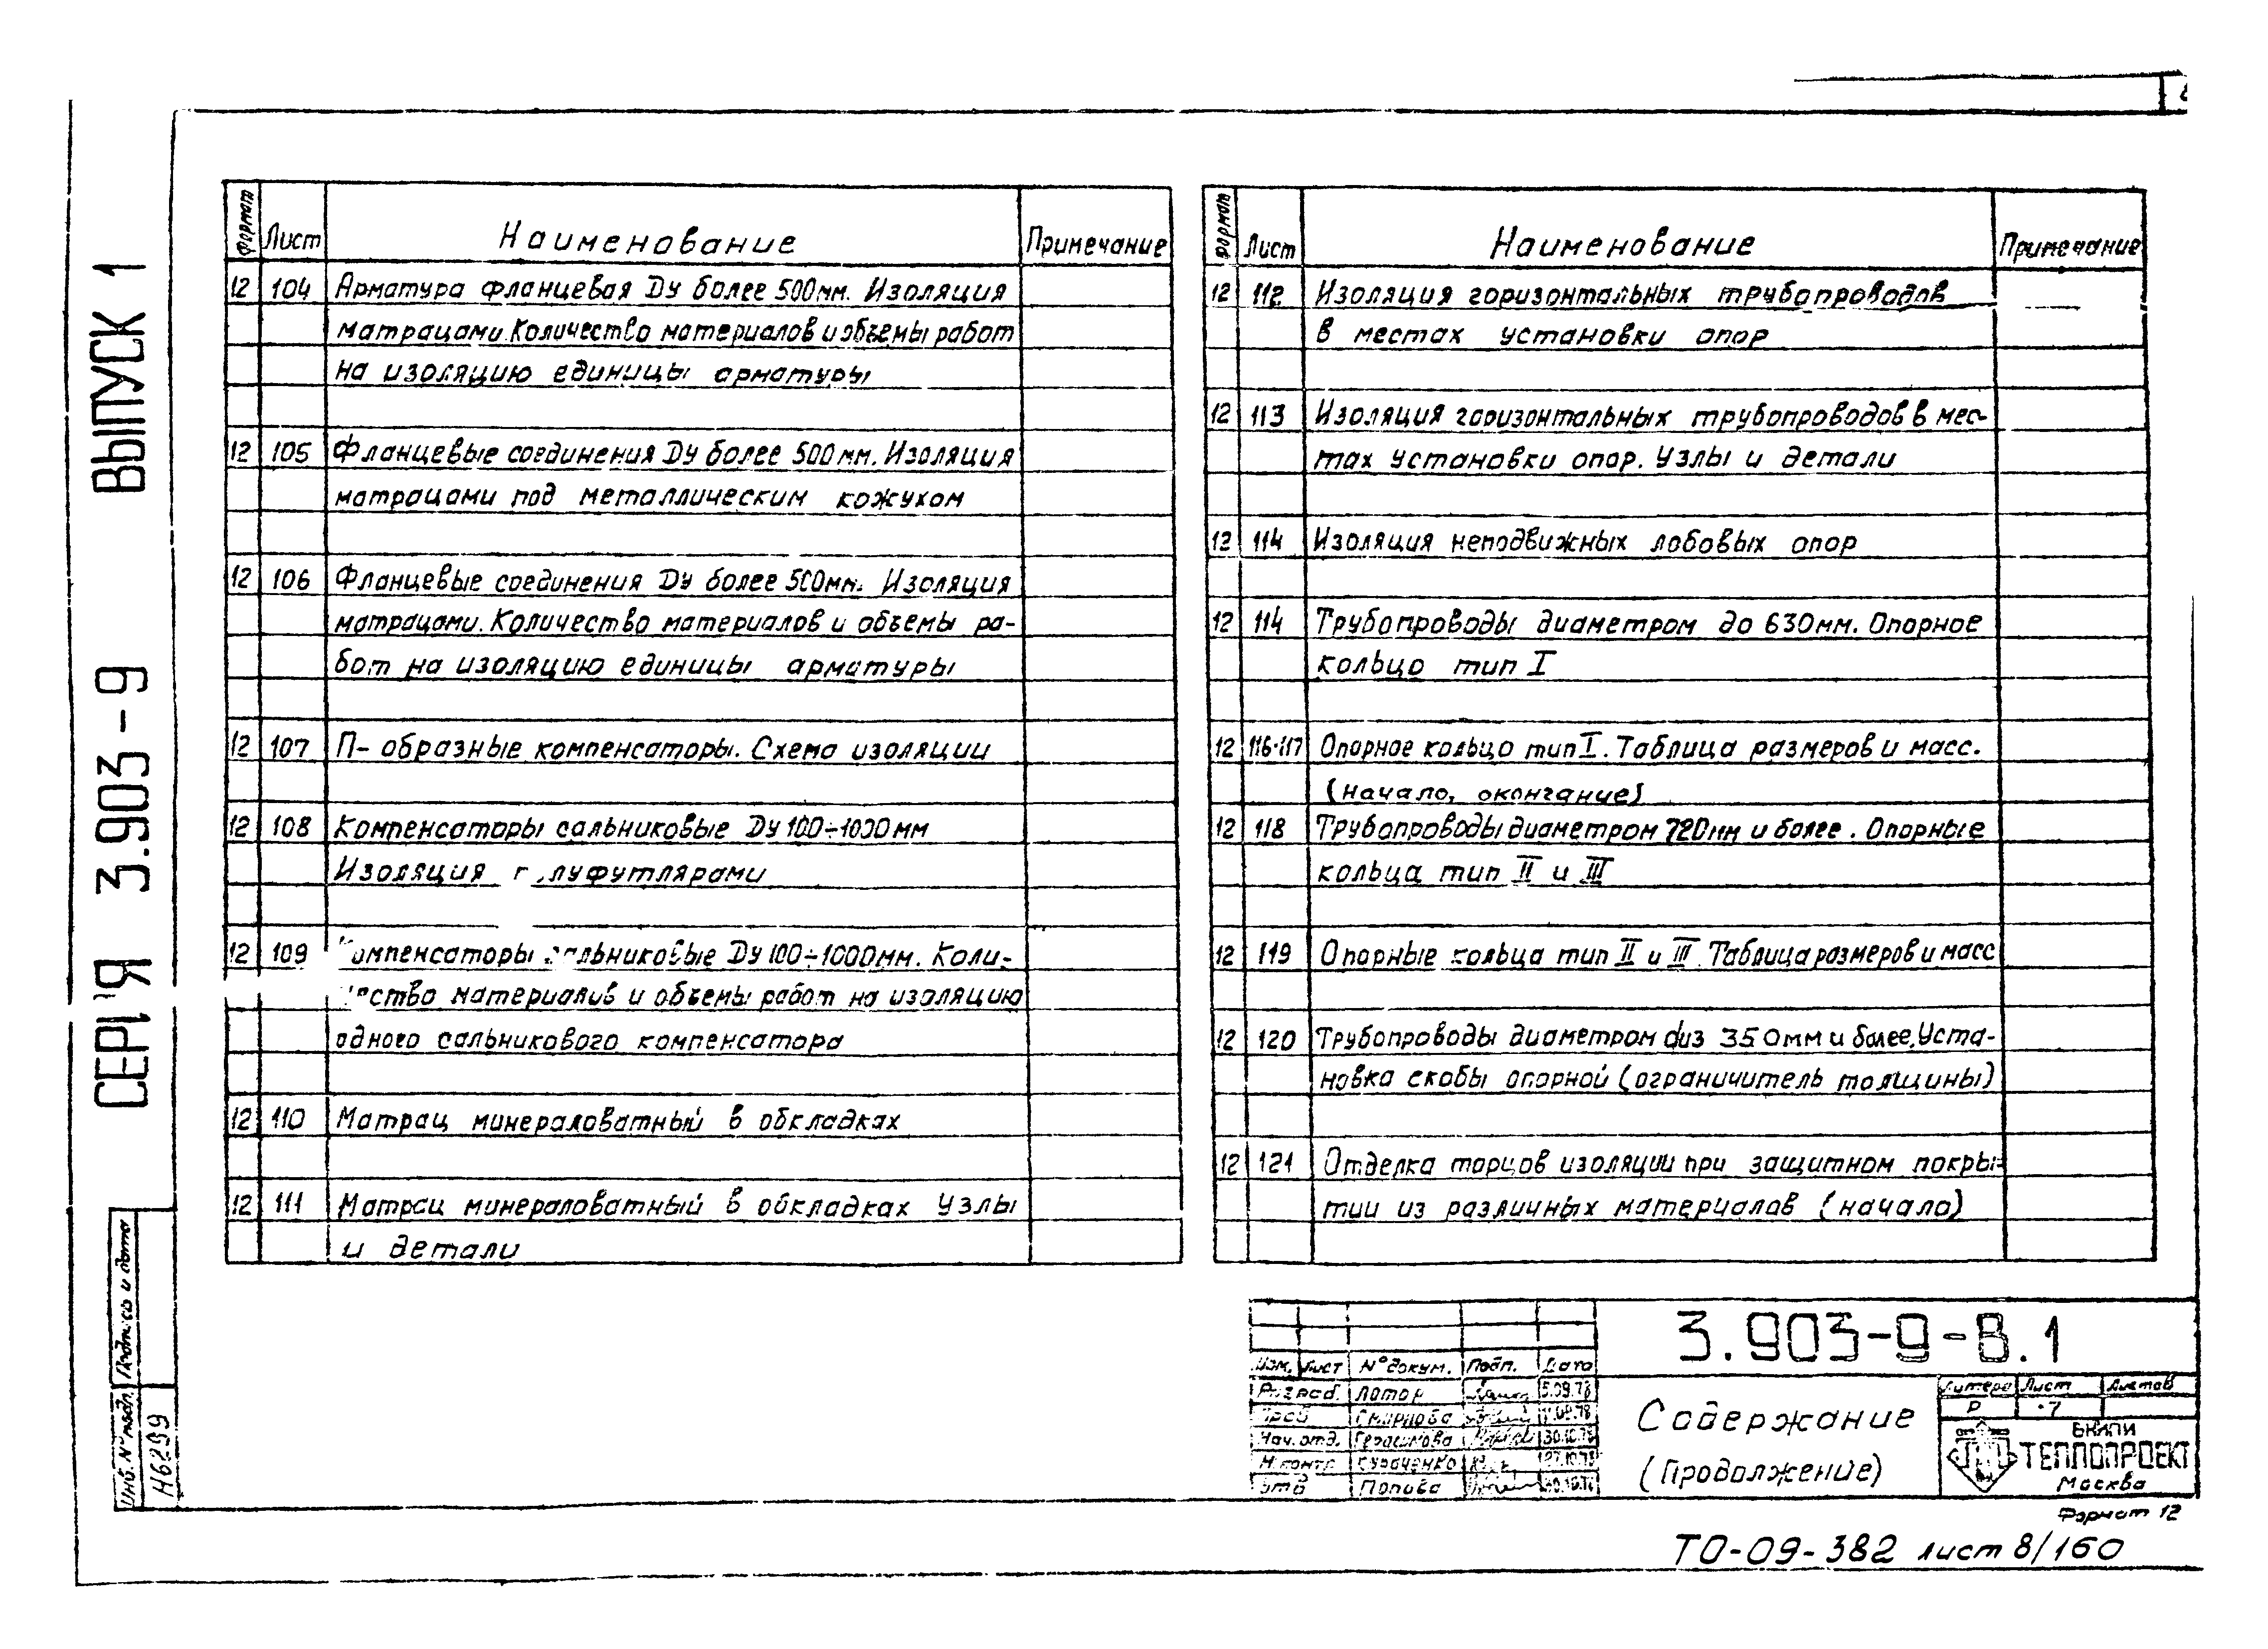 СЕРИЯ 3.903-9 ВЫПУСК 1
Формат Лист Наименование Примечание
12 104 Арматура фланцевая Ду более 500мм. Изоляция
матрацами. Количество материалов и объемы работ
на изоляцию единицы арматуры
12 105 Фланцевые соединения Ду более 500мм. Изоляция
матрацами под металлическим кожухом
12 106 Фланцевые соединения Ду более 500мм. Изоляция
матрацами. Количество материалов и объемы ра-
бот на изоляцию единицы арматуры
12 107 П-образные компенсаторы. Схема изоляции
12 108 Компенсаторы сальниковые Ду 100÷1000мм
Изоляция полуфутлярами
12 109 Компенсаторы сальниковые Ду 100÷1000мм. Коли-
чество материалов и объемы работ на изоляцию
одного сальникового компенсатора
12 110 Матрац минераловатный в обкладках
12 111 Матрац минераловатный в обкладках Узлы
и детали
Формат Лист Наименование Примечание
12 112 Изоляция горизонтальных трубопроводов
в местах установки опор
12 113 Изоляция горизонтальных трубопроводов в мес-
тах установки опор. Узлы и детали
12 114 Изоляция неподвижных лобовых опор
12 114 Трубопроводы диаметром до 630мм. Опорное
кольцо тип I
12 116·117 Опорное кольцо тип I. Таблица размеров и масс.
(начало, окончание)
12 118 Трубопроводы диаметром 720мм и более. Опорные
кольца тип II и III
12 119 Опорные кольца тип II и III. Таблица размеров и масс
12 120 Трубопроводы диаметром dиз 350мм и более. Уста-
новка скобы опорной (ограничитель толщины)
12 121 Отделка торцов изоляции при защитном покры-
тии из различных материалов (начало)
Инв. № подл. Подпись и дата
Н6299
3.903-9-В.1
Изм. Лист № докум. Подп. Дата
Разраб. Латар 5.09.78
Пров Смирнова 11.09.78
Нач. отд. Герасимова 30.10.78
Н.контр Сураченко 27.10.78
отд Попова 30.10.78
Содержание
(Продолжение)
Литера Лист Листов
Р 7
ВНИПИ
ТЕПЛОПРОЕКТ
Москва
Формат 12
ТО-09-382 лист 8/160